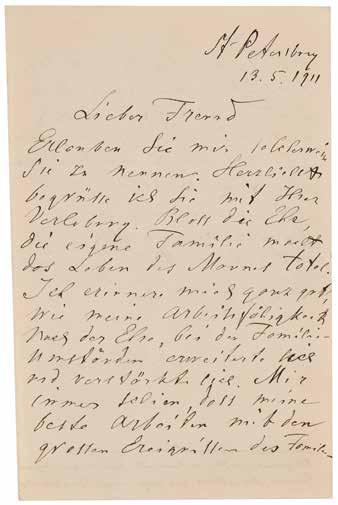 St Petersburg
13.5.1911
Lieber Freund
Erlauben Sie mir solcherweise
Sie zu nennen. Herzlichst
begrüsse ich Sie mit Ihrer
Verlobung. Bloss die Ehe,
die eigene Familie macht
das Leben des Mannes total.
Ich erinnere mich ganz gut,
wie meine Arbeitsfähigkeit
nach der Ehe, bei den Familien-
umständen erweiterte sich
und verstärkte sich. Mir
immer schien, dass meine
beste Arbeiten mit den
grossen Ereignissen des Familien